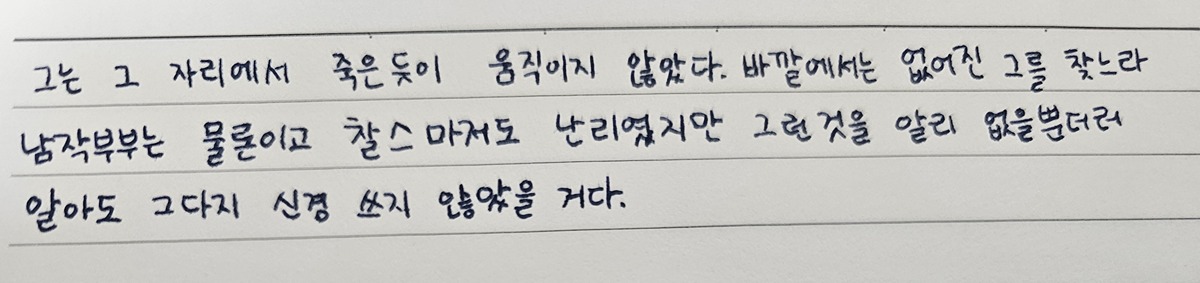 그는 그 자리에서 죽은듯이 움직이지 않았다. 바깥에서는 없어진 그를 찾느라
남작부부는 물론이고 찰스마저도 난리였지만 그런것을 알리 없을뿐더러
알아도 그다지 신경 쓰지 않았을 거다.